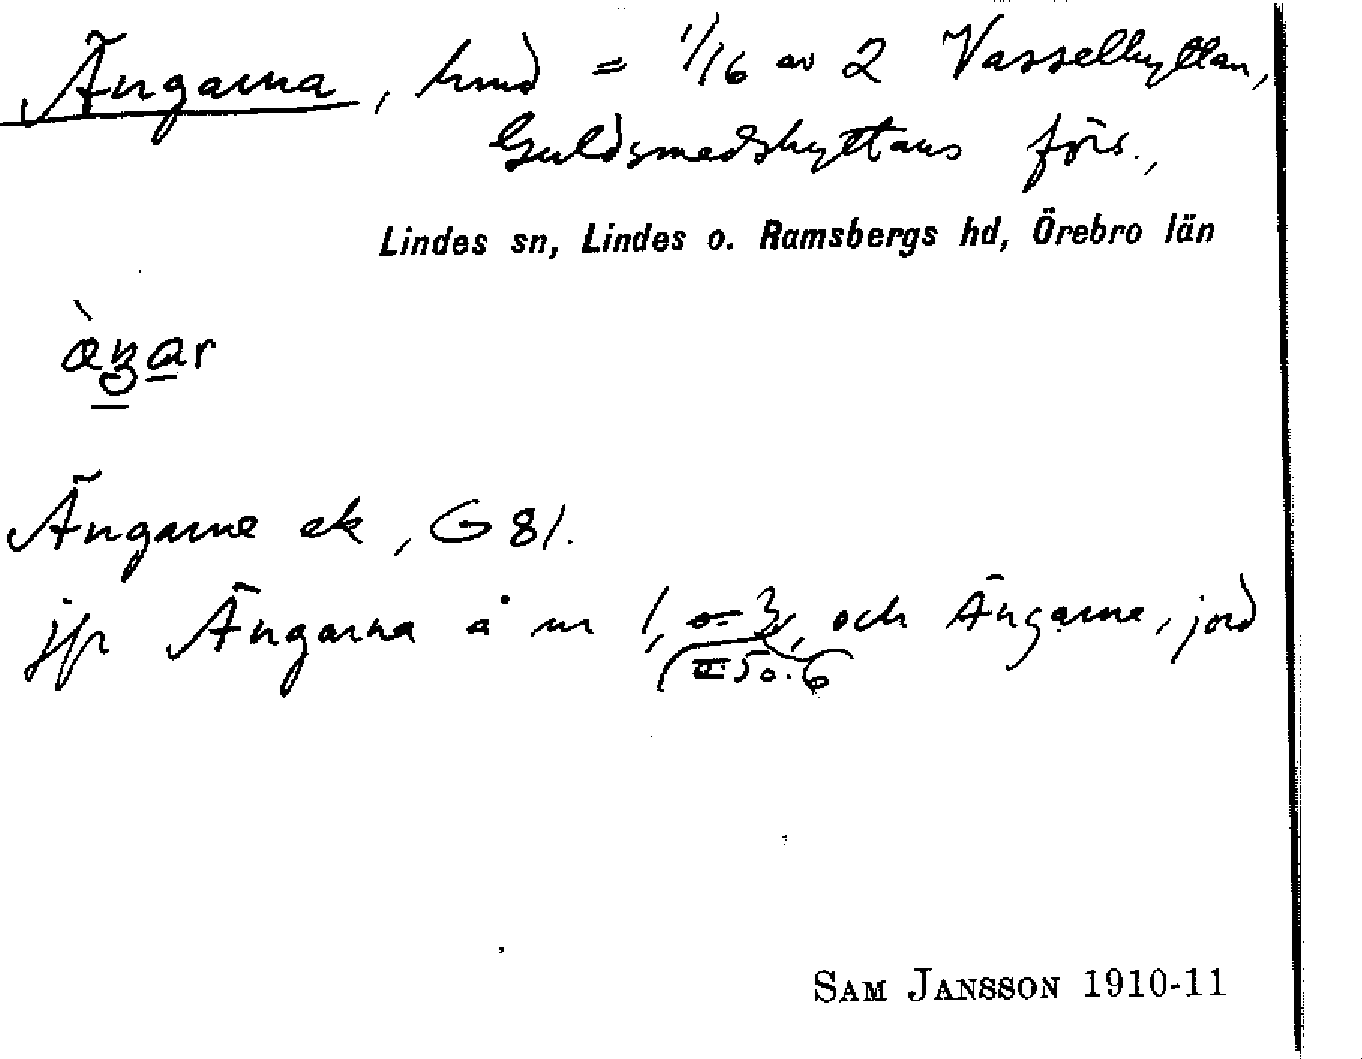 Ängarna, hmd = 1/16 av 2 Vasselhyttan,
Guldsmedshyttans förs.,
Lindes sn, Lindes o. Ramsbergs hd, Örebro län
Ängarne ek, G 81.
jfr Ängarna å nr 1, o 3, och Ängarne, jord
5 o. 6
SAM JANSSON 1910-11